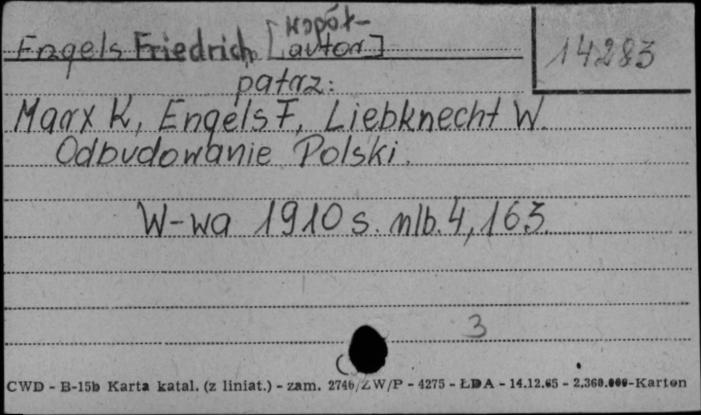 Engels Friedrich [współ-
autor]
14283
patrz:
Marx K, Engels F, Liebknecht W.
Odbudowanie Polski.
W-wa 1910 s. nlb. 4, 163.
3
CWD - B-15b Karta katal. (z liniat.) - zam. 2746/ZW/P - 4275 - ŁDA - 14.12.65 - 2.360.000-Karton